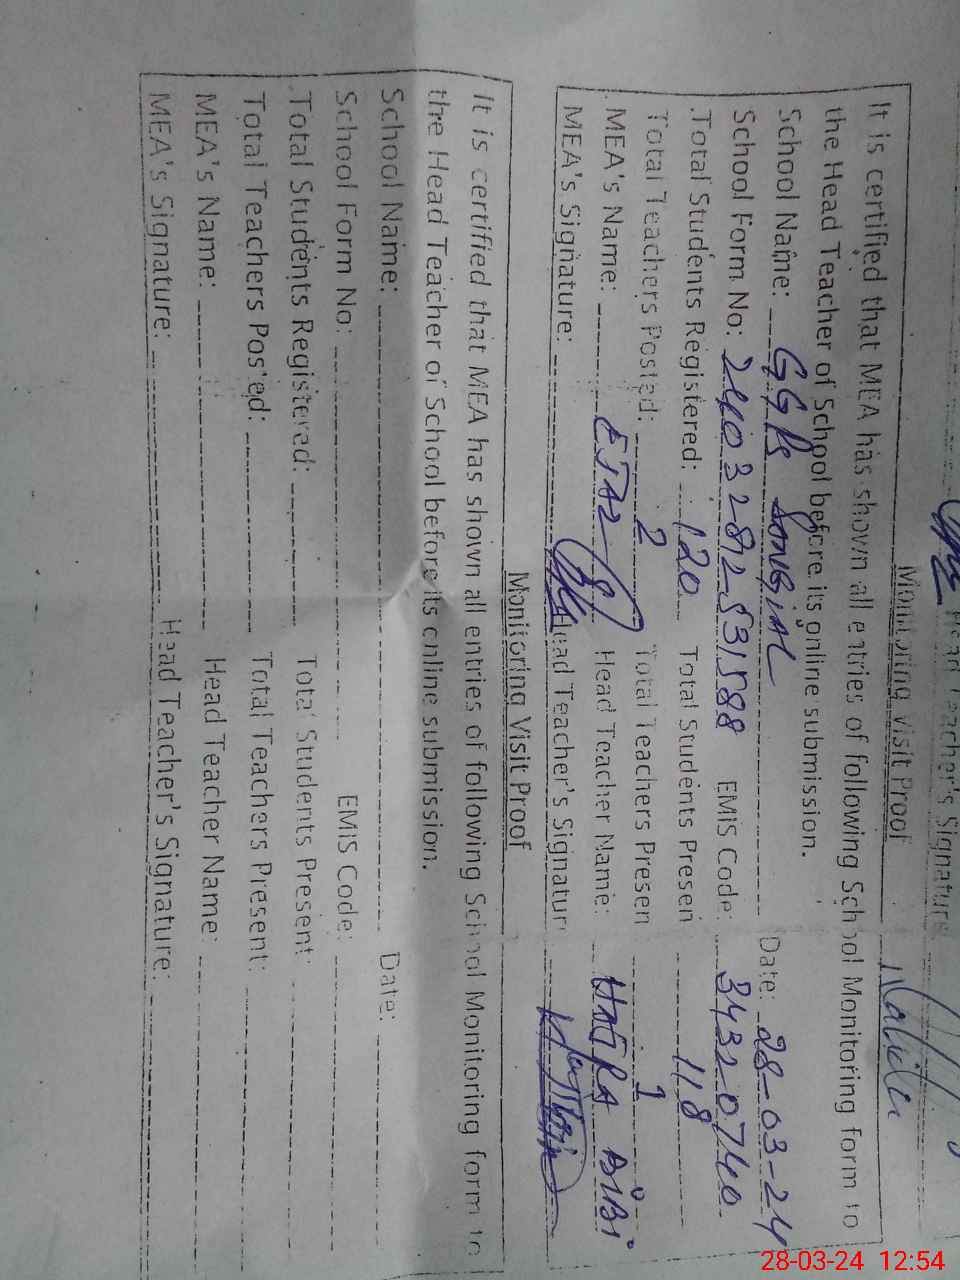 Head Teacher's Signature
Monitoring Visit Proof
It is certified that MEA has shown all entries of following School Monitoring form to
the Head Teacher of School before its online submission.
School Name: GGPS SONGIAL Date: 28-03-24
School Form No: 2403282531588 EMIS Code: 34320740
Total Students Registered: 120 Total Students Presen 118
Total Teachers Posted: 2 Total Teachers Presen 1
MEA's Name: EJAZ Head Teacher Name: HAJRA BIBI
MEA's Signature: Head Teacher's Signatur
Monitoring Visit Proof
It is certified that MEA has shown all entries of following School Monitoring form to
the Head Teacher of School before its online submission.
School Name: Date:
School Form No: EMIS Code:
Total Students Registered: Total Students Present:
Total Teachers Posted: Total Teachers Present:
MEA's Name: Head Teacher Name:
MEA's Signature: Head Teacher's Signature:
28-03-24 12:54